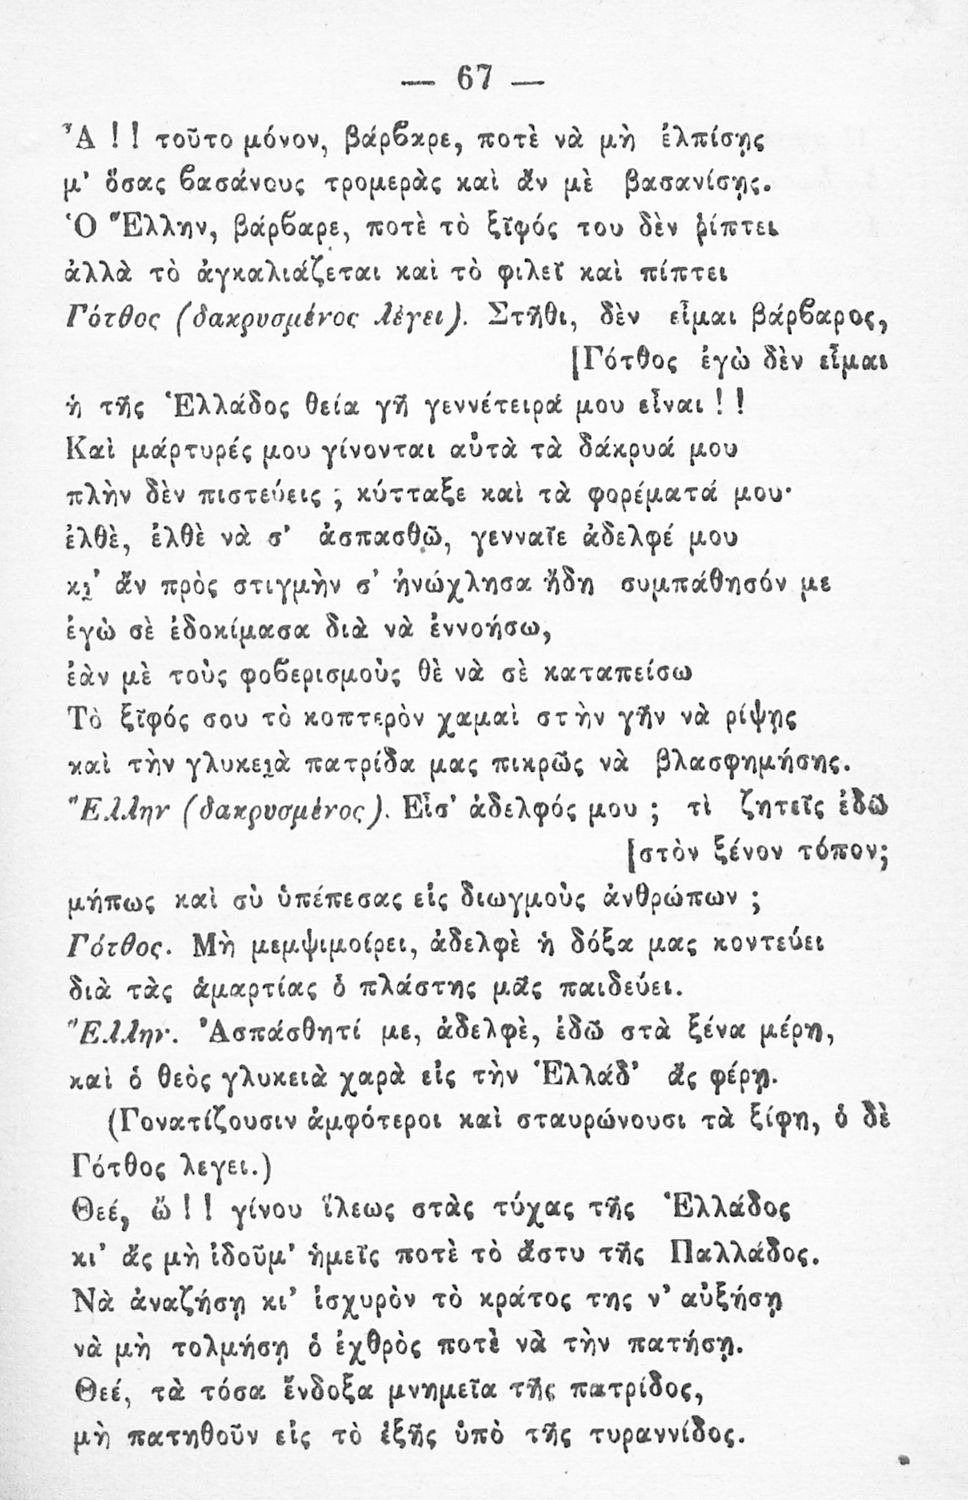 — 67 —
Ἆ!! τοῦτο μόνον, βάρβαρε, ποτὲ νὰ μὴ ἐλπίσῃς
μ' ὅσας βασάνους τρομερὰς καὶ ἂν μὲ βασανίσῃς.
Ὁ Ἕλλην, βάρβαρε, ποτὲ τὸ ξῖφός του δὲν ῥίπτει
ἀλλὰ τὸ ἀγκαλιάζεται καὶ τὸ φιλεῖ καὶ πίπτει
Γότθος (δακρυσμένος λὲγει). Στῆθι, δὲν εἶμαι βάρβαρος,
[Γότθος ἐγὼ δὲν εἶμαι
ἡ τῆς Ἑλλάδος θεία γῆ γεννέτειρά μου εἶναι!!
Καὶ μάρτυρές μου γίνονται αὐτὰ τὰ δάκρυά μου
πλὴν δὲν πιστεύεις; κύτταξε καὶ τὰ φορέματά μου·
ἐλθὲ, ἐλθὲ νὰ σ' ἀσπασθῶ, γενναῖε ἀδελφέ μου
κι' ἂν πρὸς στιγμὴν σ' ἠνώχλησα ἤδη συμπάθησόν με
ἐγὼ σὲ ἐδοκίμασα διὰ νὰ ἐννοήσω,
ἐὰν μὲ τοὺς φοβερισμοὺς θὲ νὰ σὲ καταπείσω
Τὸ ξῖφός σου τὸ κοπτερὸν χαμαὶ στὴν γῆν νὰ ρίψῃς
καὶ τὴν γλυκειὰ πατρίδα μας πικρῶς νὰ βλασφημήσης.
Ἕλλην (δακρυσμένος). Εἶσ' ἀδελφός μου; τὶ ζητεῖς ἐδῶ
[στὸν ξένον τόπον;
μήπως καὶ σὺ ὑπέπεσας εἰς διωγμοὺς ἀνθρώπων;
Γότθος. Μὴ μεμψιμοίρει, ἀδελφὲ ἡ δόξα μας κοντεύει
διὰ τὰς ἁμαρτίας ὁ πλάστης μᾶς παιδεύει.
Ἕλλην. Ἀσπάσθητί με, ἀδελφὲ, ἐδῶ στὰ ξένα μέρη,
καὶ ὁ θεὸς γλυκειὰ χαρὰ εἰς τὴν Ἑλλάδ' ἂς φέρῃ.
(Γονατίζουσιν ἀμφότεροι καὶ σταυρώνουσι τὰ ξίφη, ὁ δὲ
Γότθος λεγει.)
Θεέ, ὤ!! γίνου ἵλεως στὰς τύχας τῆς Ἑλλάδος
κι' ἂς μὴ ἰδοῦμ' ἡμεῖς ποτὲ τὸ ἄστυ τῆς Παλλάδος.
Νὰ ἀναζήσῃ κι' ἰσχυρὸν τὸ κράτος της ν' αὐξήσῃ
νὰ μὴ τολμήσῃ ὁ ἐχθρὸς ποτὲ νὰ τὴν πατήσῃ.
Θεέ, τὰ τόσα ἔνδοξα μνημεῖα τῆς πατρίδος,
μὴ πατηθοῦν εἰς τὸ ἑξῆς ὑπὸ τῆς τυραννίδος.